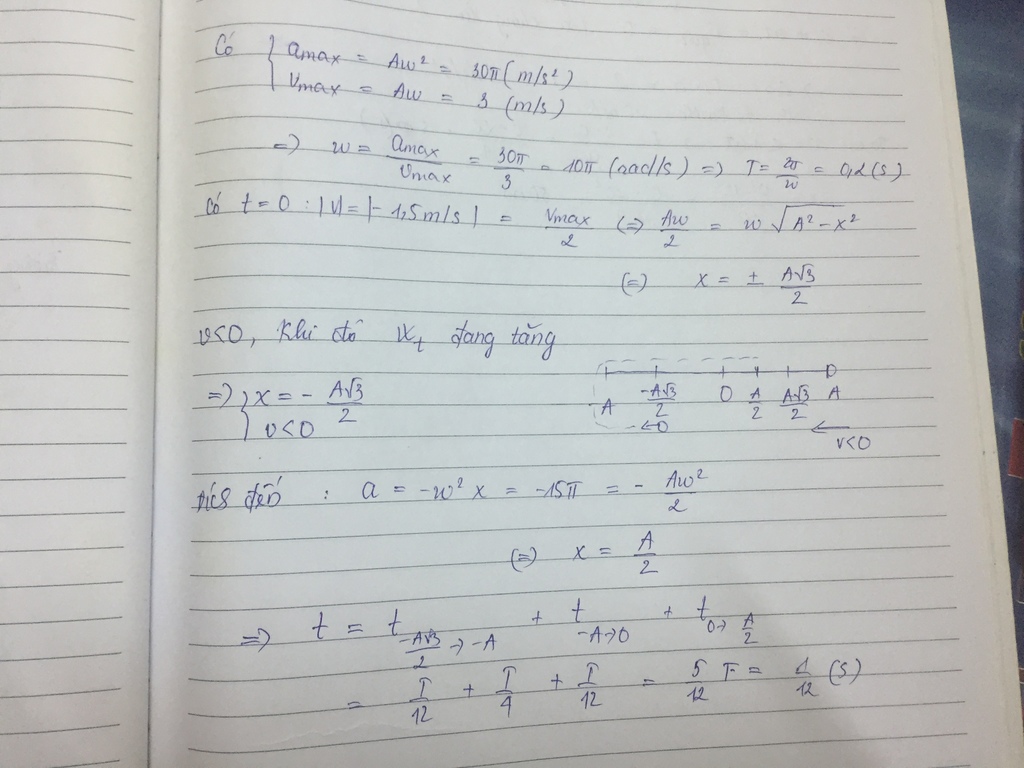 Có { amax = Aw² = 30π (m/s²)
vmax = Aw = 3 (m/s)
=> w = amax/vmax = 30π/3 = 10π (rad/s) => T = 2π/w = 0,2 (s)
Có t = 0 : |v| = |-1,5m/s| = vmax/2 (=> Aw/2 = w√(A² - x²)
(=) x = ± A√3/2
v<0, khi đó Wt đang tăng
=> { x = - A√3/2
v<0
-A -A√3/2 O A/2 A√3/2 A
v<0
đến : a = -w² x = -15π = - Aw²/2
(=) x = A/2
=> t = t -A√3/2 → -A + t -A→0 + t 0→ A/2
= T/12 + T/4 + T/12 = 5/12 T = 1/12 (s)